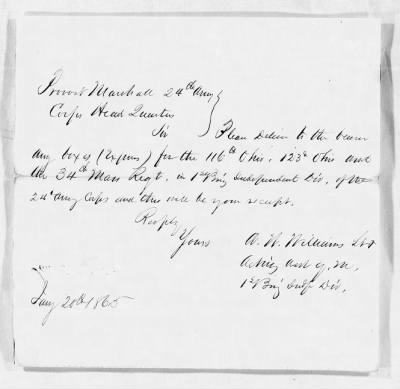 Provost Marshall 24th Army
Corps Head Quarters
Sir
Please Deliver to the bearer
any box of (Express) for the 116th Ohio, 123d Ohio and
the 34th Mass Regt. in 1st Brig Independent Div. of the
24th Army Corps and this will be your receipt.
Respfy
Yours
A. W. Williams
Acting Asst Q. M.
1st Brig Indpt Div.
Jany 20th 1865